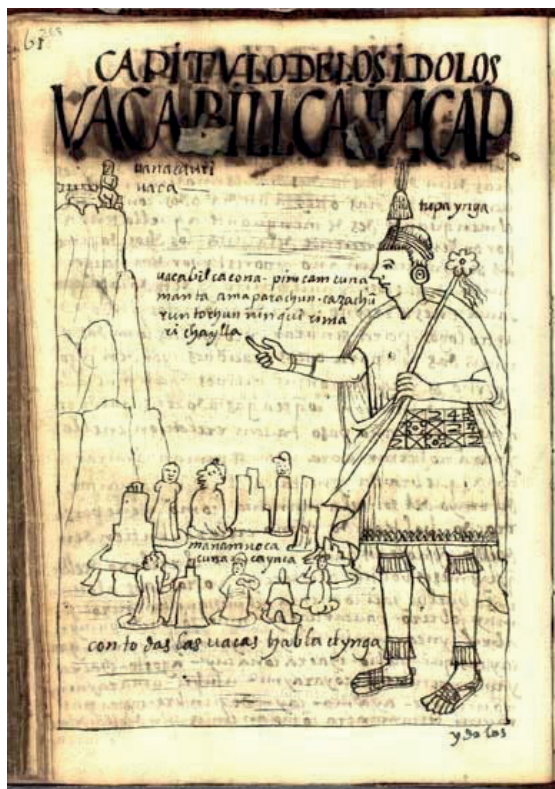 CAPITVLODELOSIDOLOS
VACA BILLCA INCAP
uanacauri
uaca
tupa ynga
uacabilcacona - pim cam cuna
manta ama parachun - cazachũ
runtochun ninqui rima
ri chaylla
manam noca
cuna caynca
con todas las uacas habla el ynga
ydolos